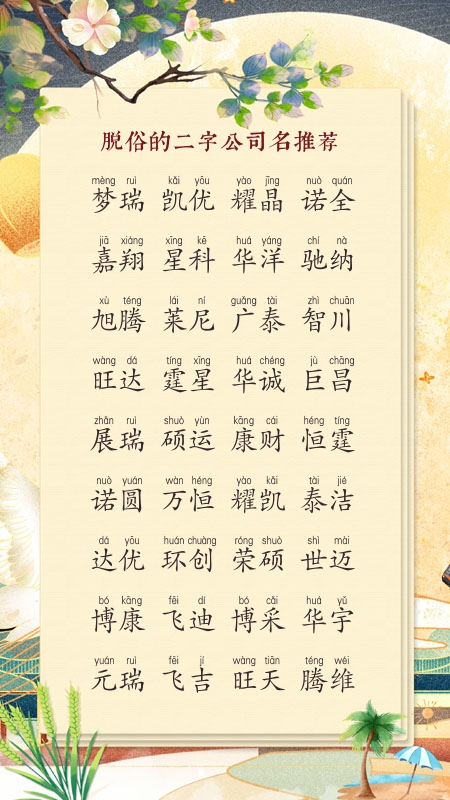 脱俗的二字公司名推荐
mèng ruì kǎi yōu yào jīng nuò quán
梦瑞 凯优 耀晶 诺全
jiā xiáng xīng kē huá yáng chí nà
嘉翔 星科 华洋 驰纳
xù téng lái ní guǎng tài zhì chuān
旭腾 莱尼 广泰 智川
wàng dá tíng xīng huá chéng jù chāng
旺达 霆星 华诚 巨昌
zhǎn ruì shuò yùn kāng cái héng tíng
展瑞 硕运 康财 恒霆
nuò yuán wàn héng yào kǎi tài jié
诺圆 万恒 耀凯 泰洁
dá yōu huán chuàng róng shuò shì mài
达优 环创 荣硕 世迈
bó kāng fēi dí bó cǎi huá yǔ
博康 飞迪 博采 华宇
yuán ruì fēi jí wàng tiān téng wéi
元瑞 飞吉 旺天 腾维